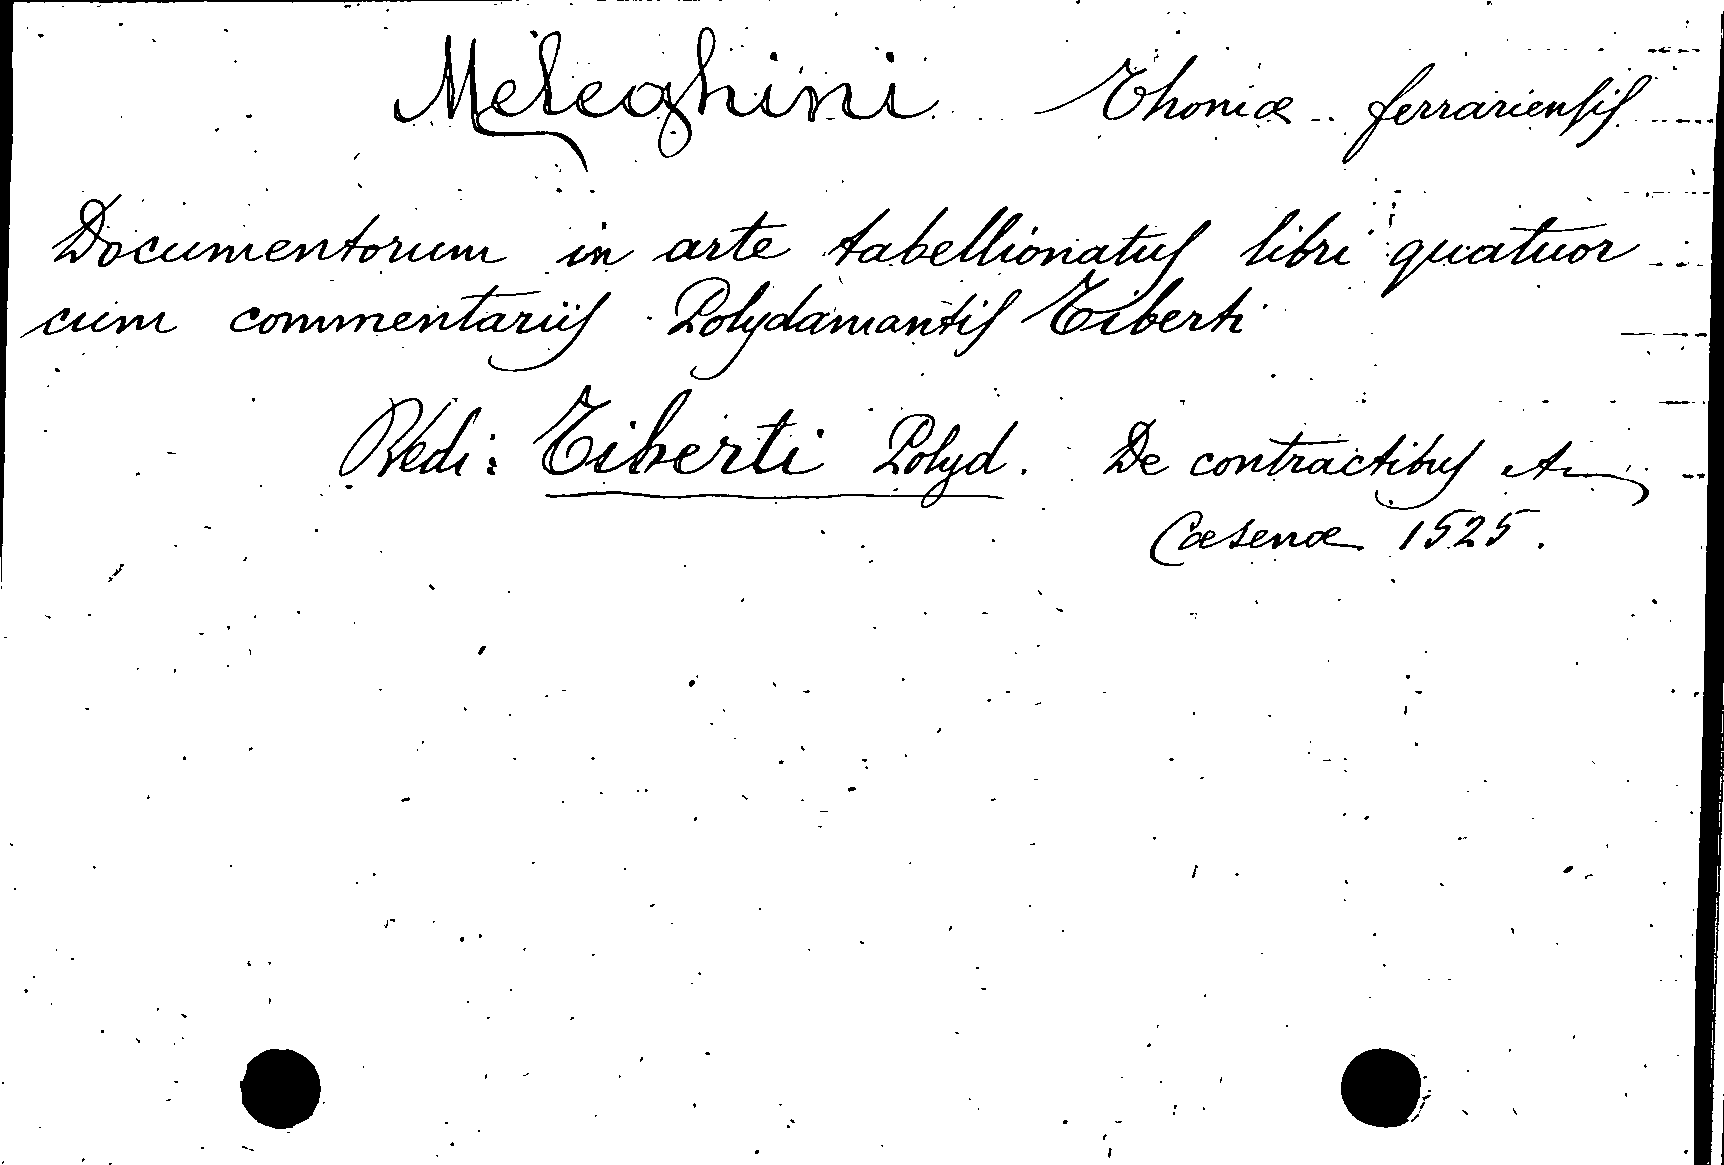 Meleghini Thomæ ferrariensis
Documentorum in arte tabellionatus libri quatuor
cum commentariis Polydamantis Tiberti
Vedi: Tiberti Polyd. De contractibus
Cæsenæ 1525.